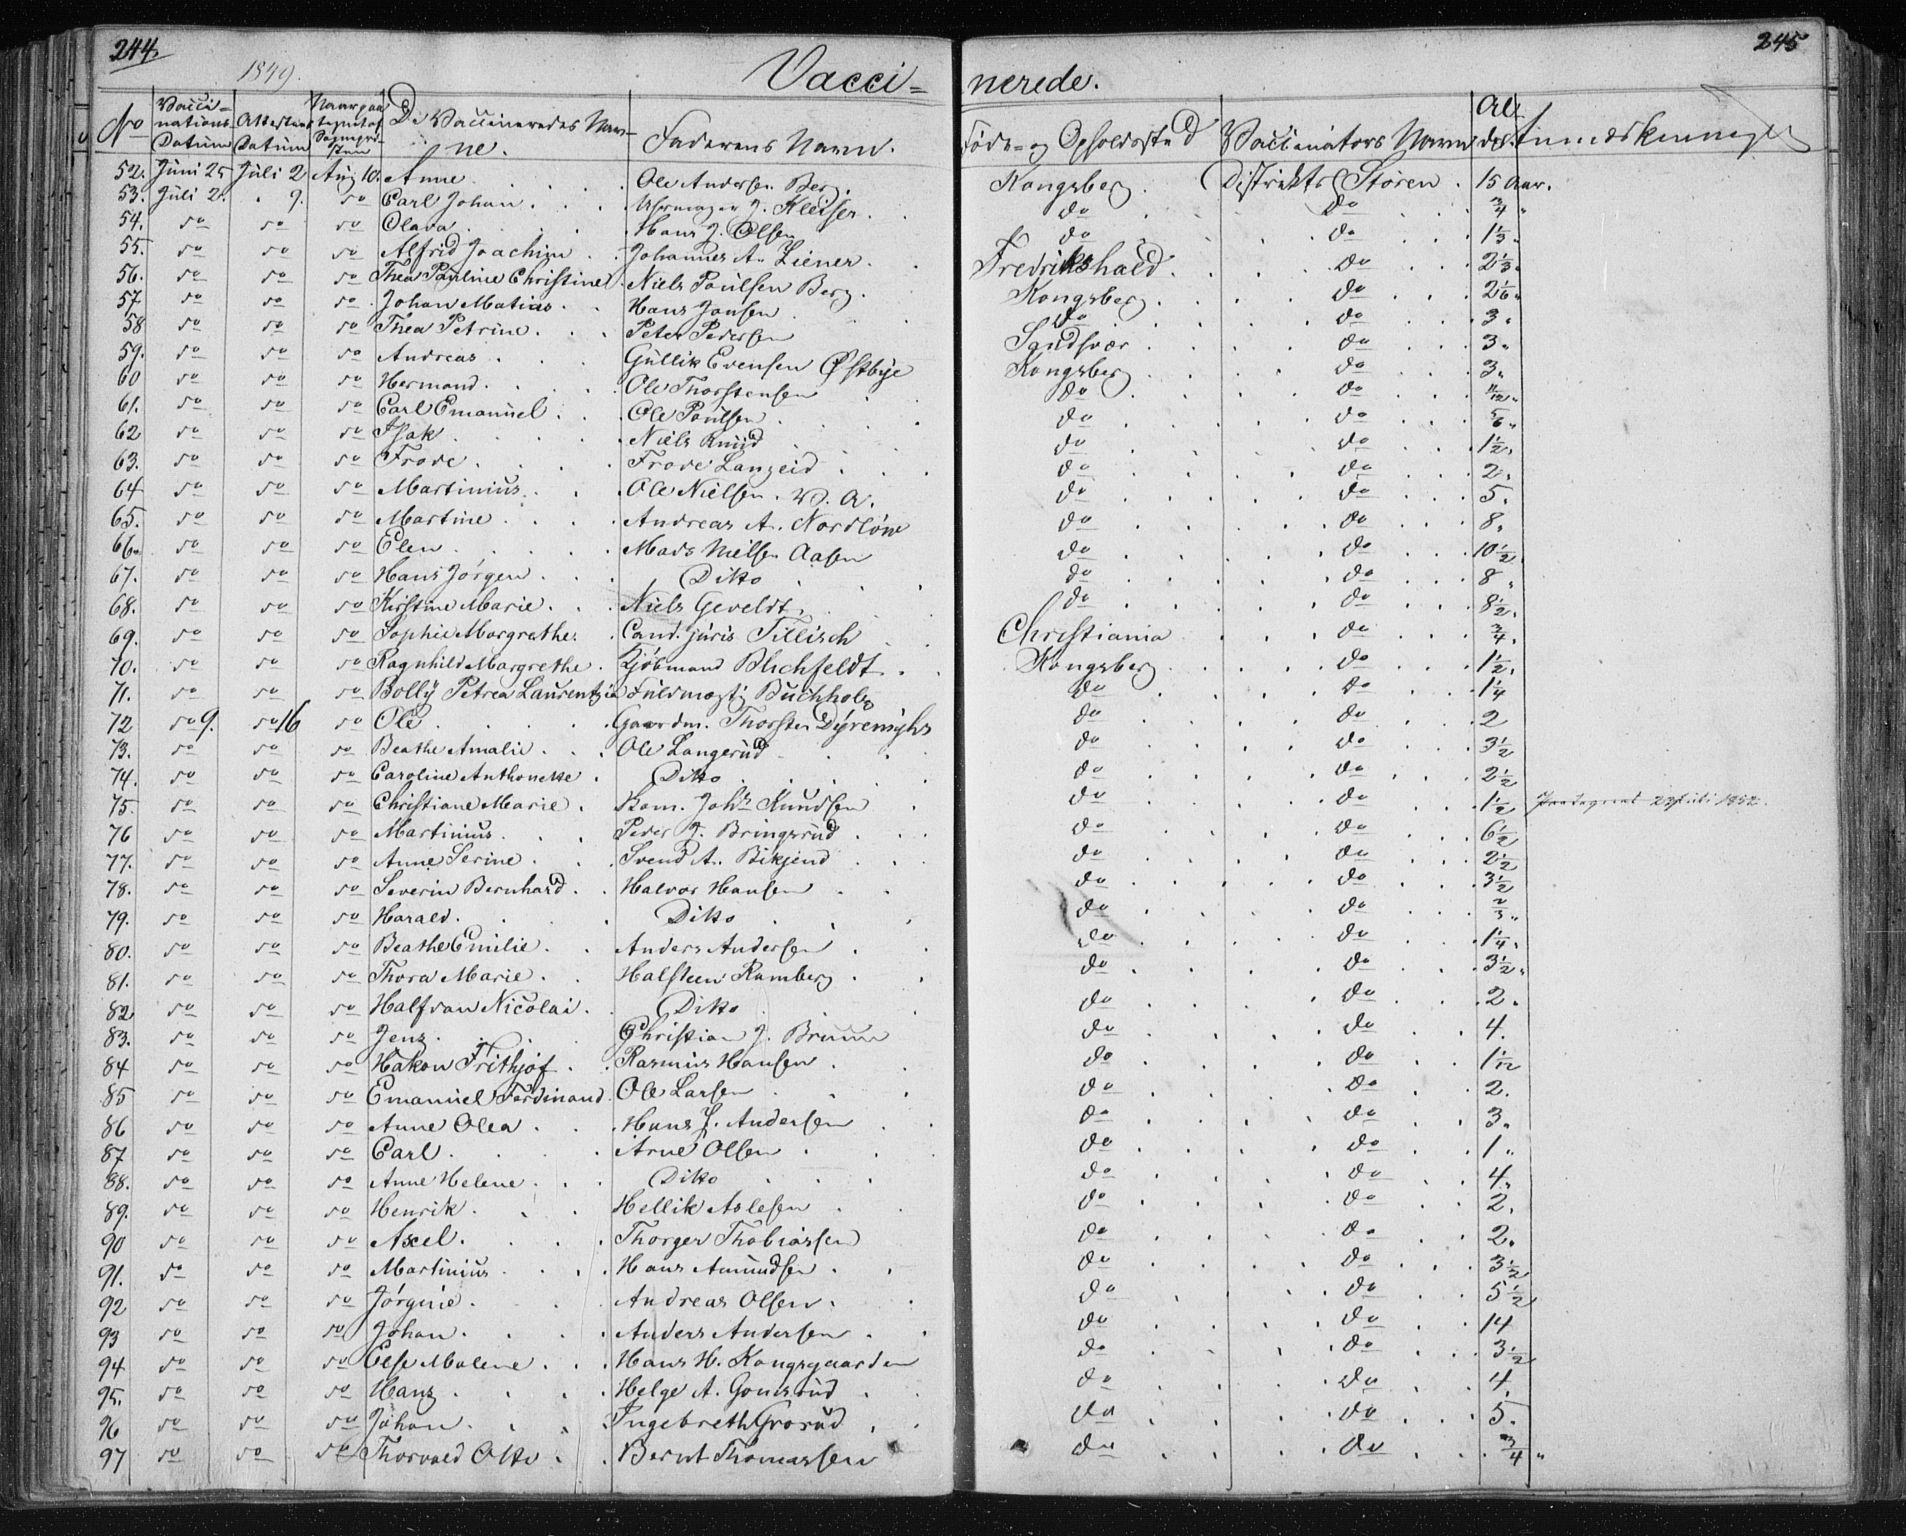 244.
245
1849.
Vacci=
nerede.
No
Vacci=
nations
Datum
Attestens
Datum
De Vaccineredes Nav=
ne.
Faderens Navn.
Føde= og Opholdssted
Vaccinators Navn
Al
der
Anmærkninger
52. Juni 25 Juli 2 Aug 10. Anne Ole Andersen Berg. Kongsberg. Distrikts Støren. 15 Aar.
53. Juli 2. 9. do Carl Johan J. Kleiser. do do 3/4 "
54. do do do Olava Hans J. Olsen do do 1 1/3 "
55. do do do Alfrid Joachim Johannes A. Liener. Fredrikshald. do 2 1/3 "
56. do do do Thea Pauline Christine Niels Poulsen Berg. Kongsberg do 2 1/6 "
57 do do do Johan Matias Hans Jansen do do 3 "
58 do do do Thea Petrine Peter Pedersen Sandsvær do 3 "
59. do do do Andreas Gullik Evensen Østbye Kongsberg do 3 "
60 do do do Hermand. Ole Thorstensen do do 11/12 "
61. do do do Carl Emanuel Ole Poulsen do do 5/6 "
62 do do do Isak Niels Knud do do 1 1/2 "
63. do do do Frode Frode Langeid do do 2 "
64 do do do Martinius Ole Nielsen. V. A. do do 5.
65. do do do Martine Andreas A. Nordløw do do 8.
66. do do do Elen Mads Nielsen Aasen do do 10 1/2
67. do do do Hans Jørgen Ditto do do 8 "
68. do do do Kirstine Marie Niels Geveldt. do do 8 1/2.
69. do do do Sophie Margrethe. Cand. juris Tillisch Christiania do 3/4.
70. do do do Ragnhild Margrethe Kjøbmand Blichfeldt. Kongsberg do 1 1/2.
71. do do do Bolly Petrea Laurentzia Fuldmægt. Buchholz do do 1 1/4
72 do 9. do 16 do Ole Gaardm. Thorsten Dyremyhr do do 2
73. do do do Beathe Amalie Ole Langerud do do 3 1/2
74. do do do Caroline Anthonette Ditto do do 2 1/2
75. do do do Christiane Marie Kom. Johs Knudsen do do 1 1/2 1852.
76 do do do Martinius Peder J. Bringsrud do do 6 1/2
77. do do do Anne Serine Svend A. Bikjend do do 2 1/2
78. do do do Severin Bernhard Halvor Hansen do do 3 1/2
79. do do do Harald. Ditto do do 2/3 "
80. do do do Beathe Emilie. Anders Andersen do do 1 1/4.
81. do do do Thora Marie Halsteen Ramberg do do 3 1/2 "
82 do do do Halfdan Nicolai Ditto do do 2.
83. do do do Jens. Christian J. Bruun do do 4.
84 do do do Hakon Frithjof Rasmus Hansen do do 1 1/12
85 do do do Emanuel Ferdinand Ole Larsen do do 2.
86 do do do Anne Olea Hans J. Andersen do do 3.
87 do do do Carl Arne Olsen do do 1 "
88. do do do Anne Helene Ditto do do 4.
89. do do do Henrik Hellik Aslesen do do 2.
90 do do do Axel. Thorger Thobiassen do do 2.
91. do do do Martinius Hans Amundsen do do 3 1/2
92 do do do Jørgine Andreas Olsen. do do 5 1/2
93 do do do Johan. Anders Andersen do do 14
94 do do do Else Malene Hans H. Kongsgaarden do do 3 1/2
95. do do do Hans Helge A. Gomsrud do do 4.
96 do do do Johan Ingebreth Grosrud do do 5.
97 do do do Thorvald Otto Bernt Thomassen do do 3/4 "